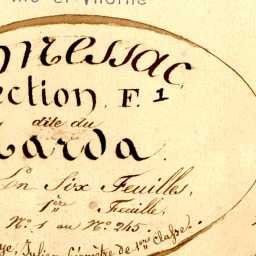 et Vilaine
nessac
ection F. 1
dite du
arda.
En Six Feuilles.
1ère Feuille,
N° 1 au N° 245.
ye, Julien Géomètre de 1ère classe.